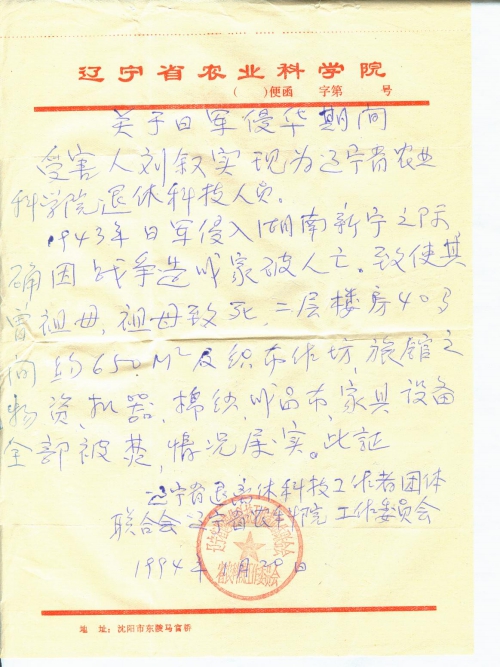 辽宁省农业科学院
(    )便函    字第    号
关于日军侵华期间
受害人刘叙实现为辽宁省农业
科学院退休科技人员。
1943年日军侵入湖南新宁之际
确因战争造成家破人亡。致使其
曾祖母,祖母致死,二层楼房40多
间约650M²及织布作坊,旅馆之
物资,机器,棉纱,成品布,家具设备
全部被焚,情况属实。此证
辽宁省退离休科技工作者团体
联合会辽宁省农科院工作委员会
1994年1月29日
地    址:沈阳市东陵马官桥